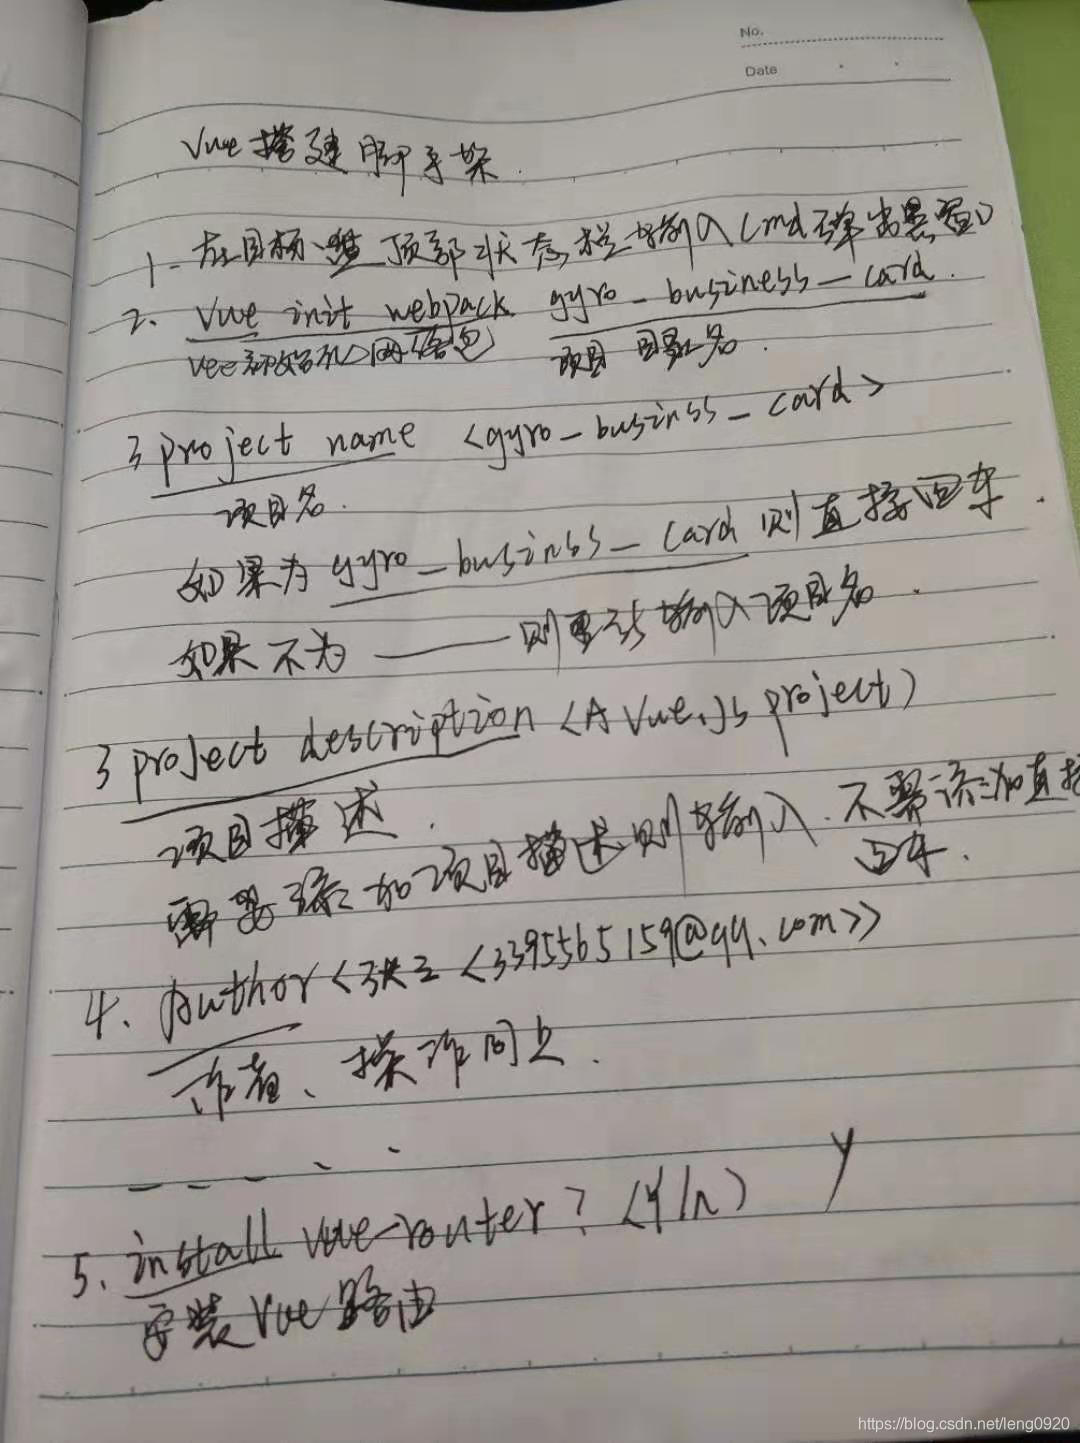 No.
Date
Vue搭建脚手架.
1. 在目标 顶部状态栏输入cmd弹出黑窗口
2. vue init webpack gyro_business_card.
vue初始化 网络包 项目 目录名.
3 project name <gyro_businss_card>
项目名.
如果为gyro_businss_card则直接回车.
如果不为——则重新输入项目名.
3 project description <A Vue.js project)
项目描述.
需要添加项目描述则输入.不需添加直接
回车.
4. Author<张三<3395565159@qq.com>>
作者、操作同上.
5. install vue-router? (Y/n) y
安装Vue路由
https://blog.csdn.net/leng0920